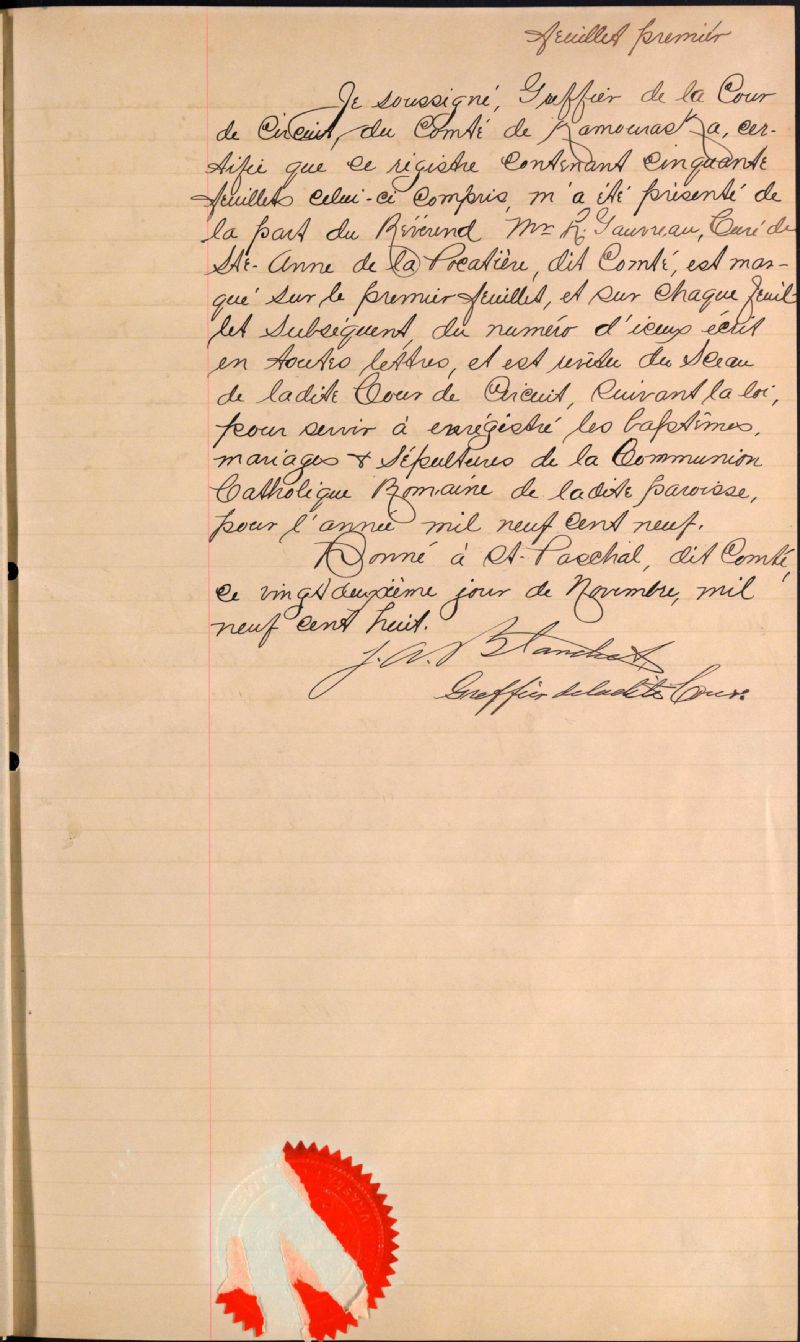 feuillet premier
Je soussigné, Greffier de la Cour
de Circuit, du Comté de Kamouraska, cer-
tifie que ce régistre contenant cinquante
feuillets celui-ci compris, m'a été présenté de
la part du Révérend Mr L. Gauvreau, Curé de
Ste-Anne de la Pocatière, dit Comté, est mar-
qué sur le premier feuillet, et sur chaque feuil-
let subséquent, du numéro d'iceux écrit
en toutes lettres, et est revêtu du Sceau
de ladite Cour de Circuit, suivant la loi,
pour servir à enrégistré les baptêmes,
mariages & Sépultures de la Communion
Catholique Romaine de ladite paroisse,
pour l'année mil neuf cent neuf.
Donné à St-Paschal, dit Comté,
ce vingt deuxième jour de Novembre, mil
neuf cent huit.
J. A. Blanchet
Greffier de ladite Cour.